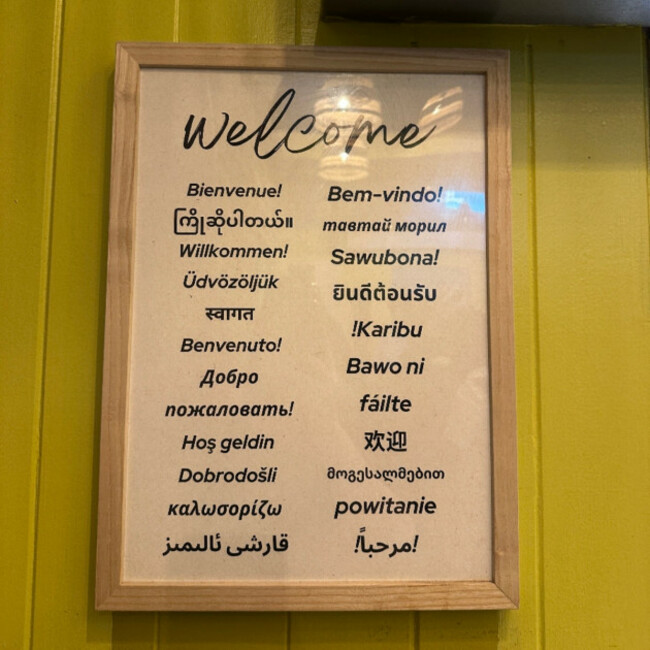 welcome
Bienvenue!
ကြိုဆိုပါတယ်။
Willkommen!
Üdvözöljük
स्वागत
Benvenuto!
Добро
пожаловать!
Hoş geldin
Dobrodošli
καλωσορίζω
قارشى ئالىمىز
Bem-vindo!
тавтай морил
Sawubona!
ยินดีต้อนรับ
!Karibu
Bawo ni
fáilte
欢迎
მოგესალმებით
powitanie
!مرحباً!